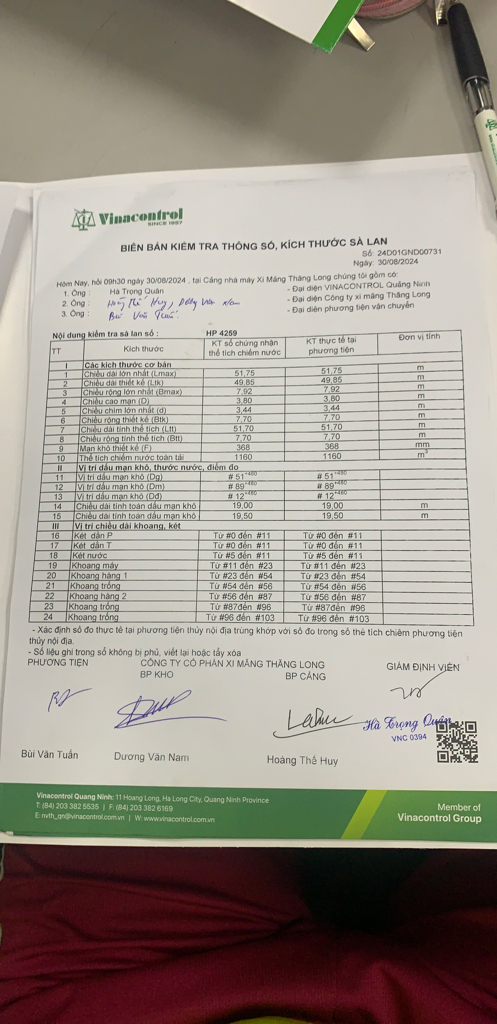 Vinacontrol
SINCE 1957
BIÊN BẢN KIỂM TRA THÔNG SỐ, KÍCH THƯỚC SÀ LAN
Số: 24D01GND00731
Ngày: 30/08/2024
Hôm Nay, hồi 09h30 ngày 30/08/2024 , tại Cảng nhà máy Xi Măng Thăng Long chúng tôi gồm có:
1. Ông : Hà Trọng Quân - Đại diện VINACONTROL Quảng Ninh
2. Ông : Hoàng Thế Huy, Dương Văn Nam - Đại diện Công ty xi măng Thăng Long
3. Ông : Bùi Văn Tuấn - Đại diện phương tiện vận chuyển
Nội dung kiểm tra sà lan số : HP 4259
TT Kích thước KT sổ chứng nhận thể tích chiếm nước KT thực tế tại phương tiện Đơn vị tính
I Các kích thước cơ bản
1 Chiều dài lớn nhất (Lmax) 51,75 51,75 m
2 Chiều dài thiết kế (Ltk) 49,85 49,85 m
3 Chiều rộng lớn nhất (Bmax) 7,92 7,92 m
4 Chiều cao mạn (D) 3,80 3,80 m
5 Chiều chìm lớn nhất (d) 3,44 3,44 m
6 Chiều rộng thiết kế (Btk) 7,70 7,70 m
7 Chiều dài tính thể tích (Ltt) 51,70 51,70 m
8 Chiều rộng tính thể tích (Btt) 7,70 7,70 m
9 Mạn khô thiết kế (F) 368 368 mm
10 Thể tích chiếm nước toàn tải 1160 1160 m³
II Vị trí dấu mạn khô, thước nước, điểm đo
11 Vị trí dấu mạn khô (Dg) # 51⁺⁴⁶⁰ # 51⁺⁴⁶⁰
12 Vị trí dấu mạn khô (Dm) # 89⁺⁴⁶⁰ # 89⁺⁴⁶⁰
13 Vị trí dấu mạn khô (Dđ) # 12⁺⁴⁶⁰ # 12⁺⁴⁶⁰
14 Chiều dài tính toán dấu mạn khô 19,00 19,00 m
15 Chiều dài tính toán dấu mạn khô 19,50 19,50 m
III Vị trí chiều dài khoang, két
16 Két dằn P Từ #0 đến #11 Từ #0 đến #11
17 Két dằn T Từ #0 đến #11 Từ #0 đến #11
18 Két nước Từ #5 đến #11 Từ #5 đến #11
19 Khoang máy Từ #11 đến #23 Từ #11 đến #23
20 Khoang hàng 1 Từ #23 đến #54 Từ #23 đến #54
21 Khoang trống Từ #54 đến #56 Từ #54 đến #56
22 Khoang hàng 2 Từ #56 đến #87 Từ #56 đến #87
23 Khoang trống Từ #87đến #96 Từ #87đến #96
24 Khoang trống Từ #96 đến #103 Từ #96 đến #103
- Xác định số đo thực tế tại phương tiện thủy nội địa trùng khớp với số đo trong sổ thể tích chiếm phương tiện
thủy nội địa.
- Số liệu ghi trong sổ không bị phủ, viết lại hoặc tẩy xóa
PHƯƠNG TIỆN CÔNG TY CỔ PHẦN XI MĂNG THĂNG LONG GIÁM ĐỊNH VIÊN
BP KHO BP CẢNG
Hà Trọng Quân
VNC 0394
Bùi Văn Tuấn Dương Văn Nam Hoàng Thế Huy
Vinacontrol Quang Ninh: 11 Hoang Long, Ha Long City, Quang Ninh Province
T: (84) 203 382 5535 | F: (84) 203 382 6169
E: nvth_qn@vinacontrol.com.vn | W: www.vinacontrol.com.vn
Member of
Vinacontrol Group